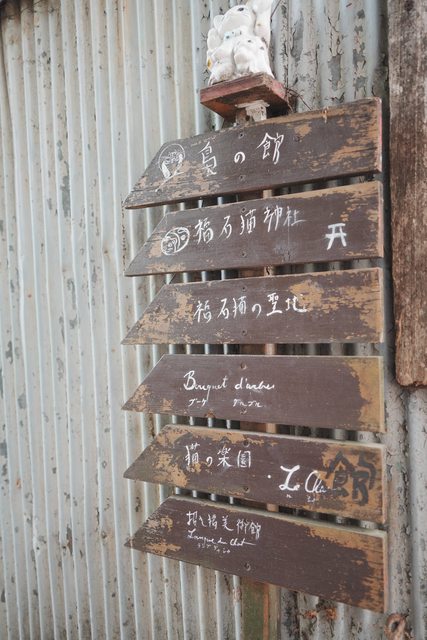 梟の館
福石猫神社
福石猫の聖地
Bouquet d'arbre
ブーケ ダルブル
猫の楽園
館
招き猫美術館
Langue du chat